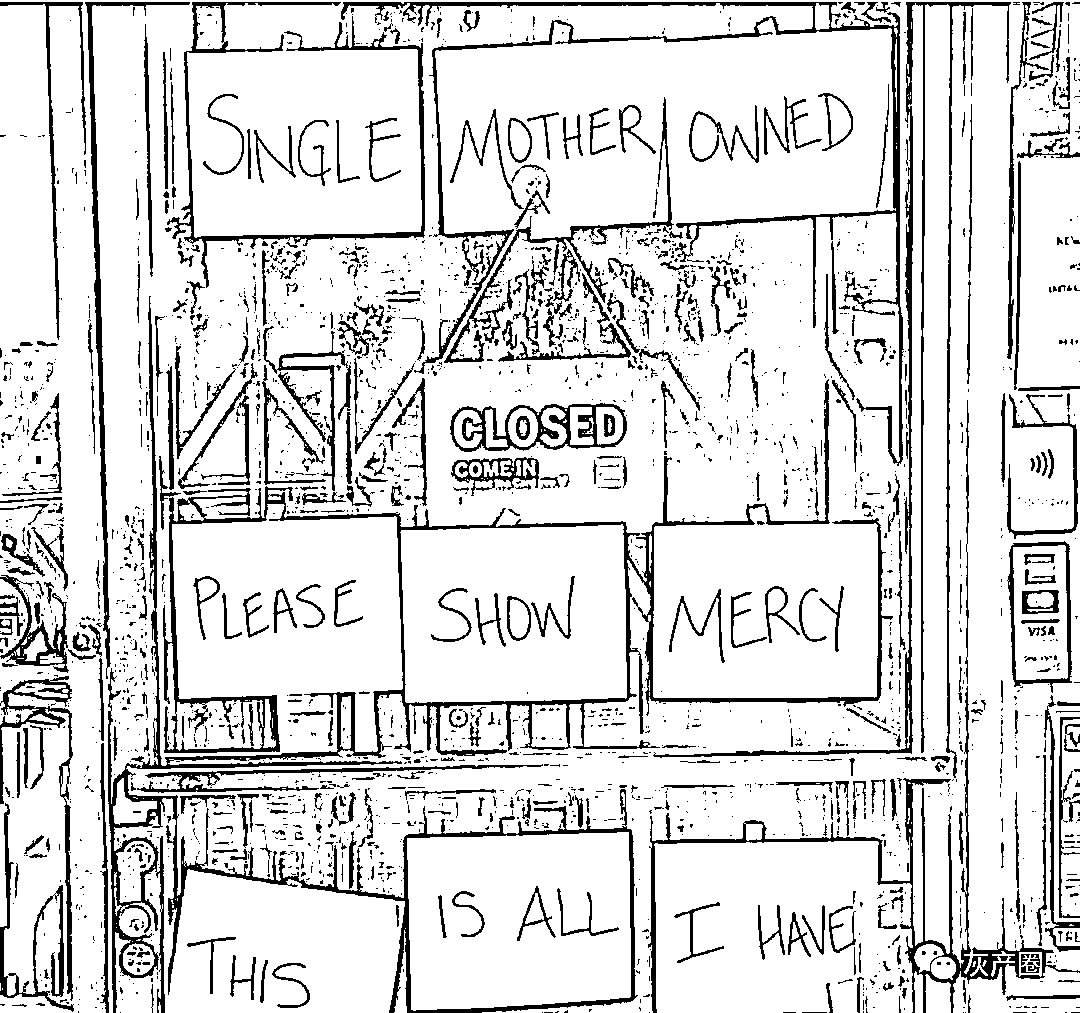 SINGLE MOTHER OWNED
CLOSED
COME IN
PLEASE SHOW MERCY
VISA
THIS IS ALL I HAVE
灰产圈